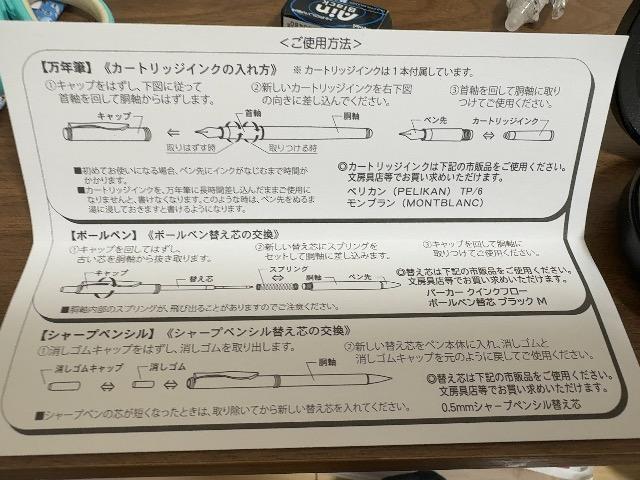 Air
Black
＜ご使用方法＞
【万年筆】《カートリッジインクの入れ方》 ※カートリッジインクは1本付属しています。
①キャップをはずし、下図に従って
首軸を回して胴軸からはずします。
②新しいカートリッジインクを右下図
の向きに差し込んでください。
③首軸を回して胴軸に取り
つけてご使用ください。
キャップ
首軸
胴軸
ペン先
カートリッジインク
取りはずす時
取りつける時
■初めてお使いになる場合、ペン先にインクがなじむまで時間が
かかります。
■カートリッジインクを、万年筆に長時間差し込んだままご使用に
なりませんと、書けなくなります。このような時は、ペン先をぬるま
湯に浸しておきますと書けるようになります。
◎カートリッジインクは下記の市販品をご使用ください。
文房具店等でお買い求めいただけます。
ペリカン（PELIKAN） TP/6
モンブラン（MONTBLANC）
【ボールペン】《ボールペン替え芯の交換》
①キャップを回してはずし、
古い芯を胴軸から抜き取ります。
②新しい替え芯にスプリングを
セットして胴軸に差し込みます。
③キャップを回して胴軸に
取りつけてご使用ください。
キャップ
替え芯
スプリング
胴軸
ペン先
■胴軸内部のスプリングが、飛び出ることがありますのでご注意ください。
◎替え芯は下記の市販品をご使用ください。
文房具店等でお買い求めいただけます。
パーカー クインクフロー
ボールペン替芯 ブラック M
【シャープペンシル】《シャープペンシル替え芯の交換》
①消しゴムキャップをはずし、消しゴムを取り出します。
②新しい替え芯をペン本体に入れ、消しゴムと
消しゴムキャップを元のように戻してご使用ください。
消しゴムキャップ
消しゴム
胴軸
■シャープペンの芯が短くなったときは、取り除いてから新しい替え芯を入れてください。
◎替え芯は下記の市販品をご使用ください。
文房具店等でお買い求めいただけます。
0.5mmシャープペンシル替え芯